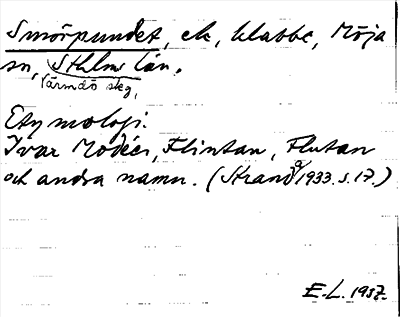 Smörpundet, ek, klabbe, Möja
sn, Sthlms län.
Värmdö skg,
Etymologi.
Ivar Modéer, Flintan, Flutan
och andra namn. (Strand 1933. s. 17.)
E.L. 1937.